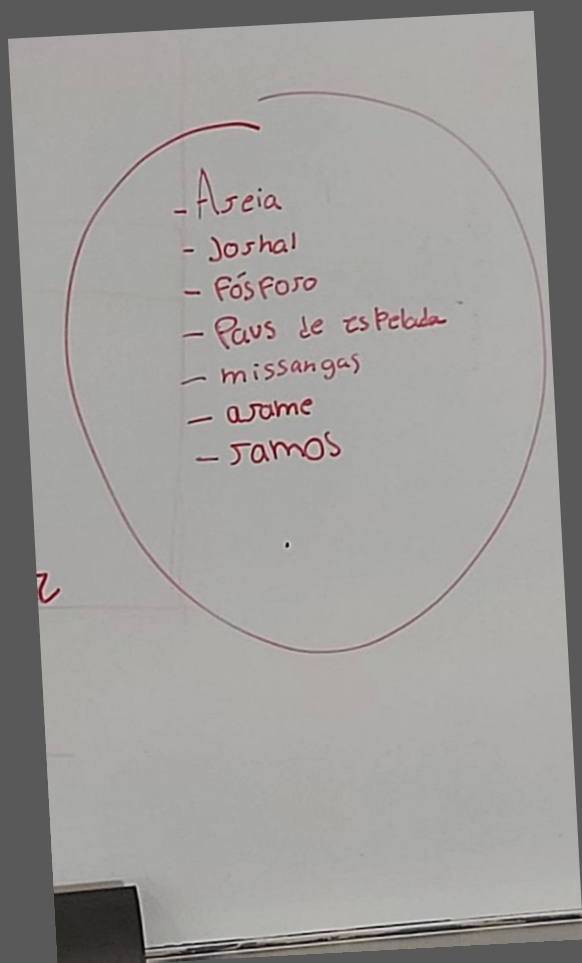 - Areia
- Jornal
- Fósforo
- Paus de espetada
- missangas
- arame
- ramos